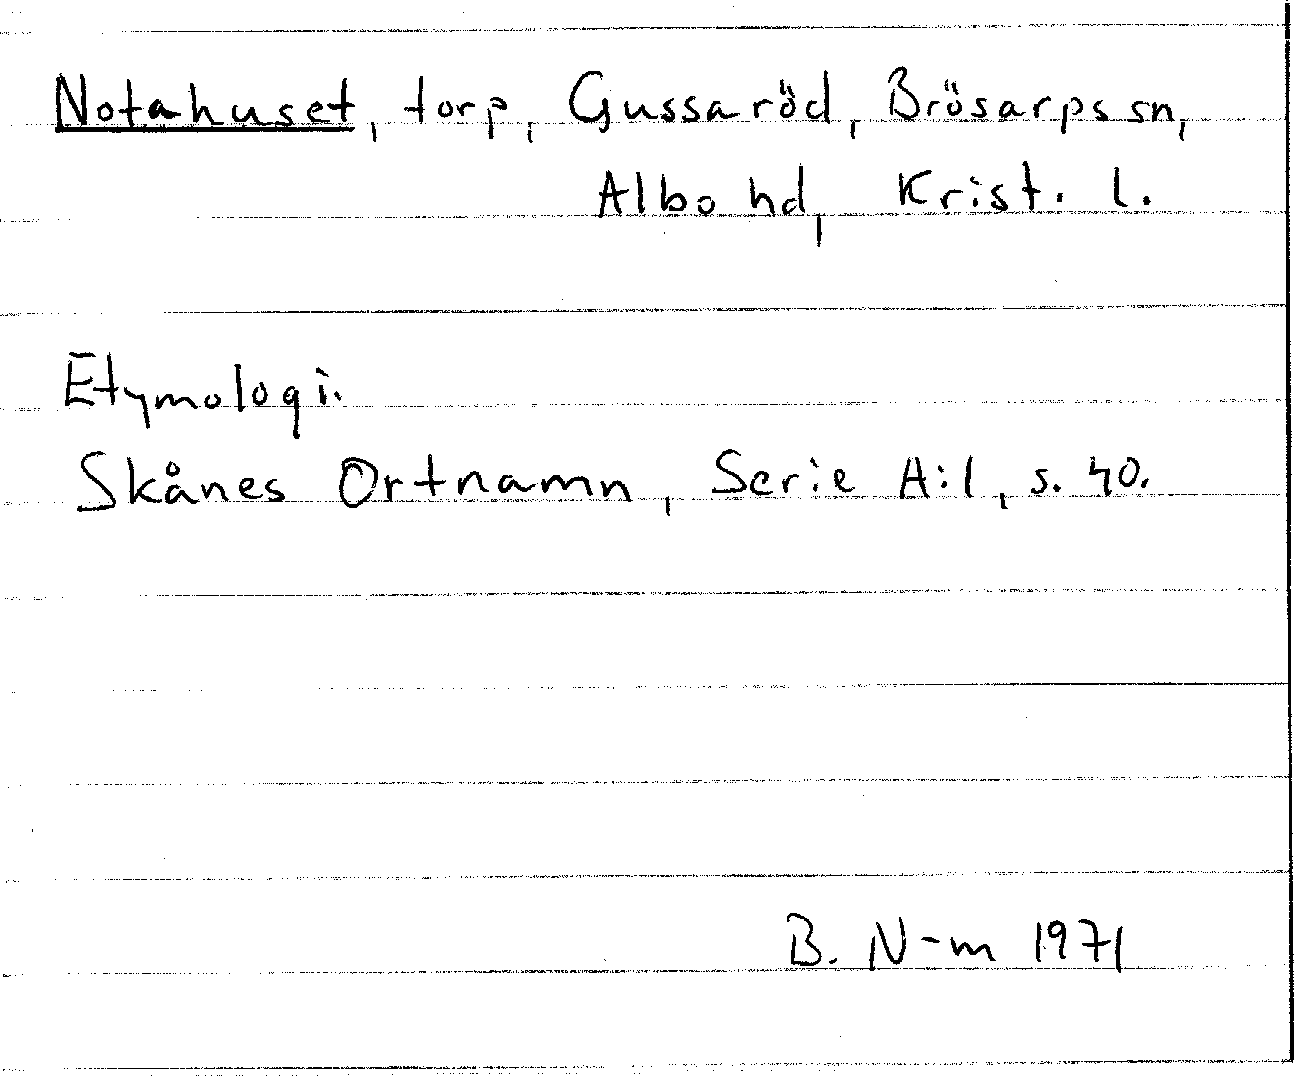 Notahuset, torp, Gussaröd, Brösarps sn,
Albo hd, Krist. l.
Etymologi.
Skånes Ortnamn, Serie A:1, s. 40.
B. N-m 1971